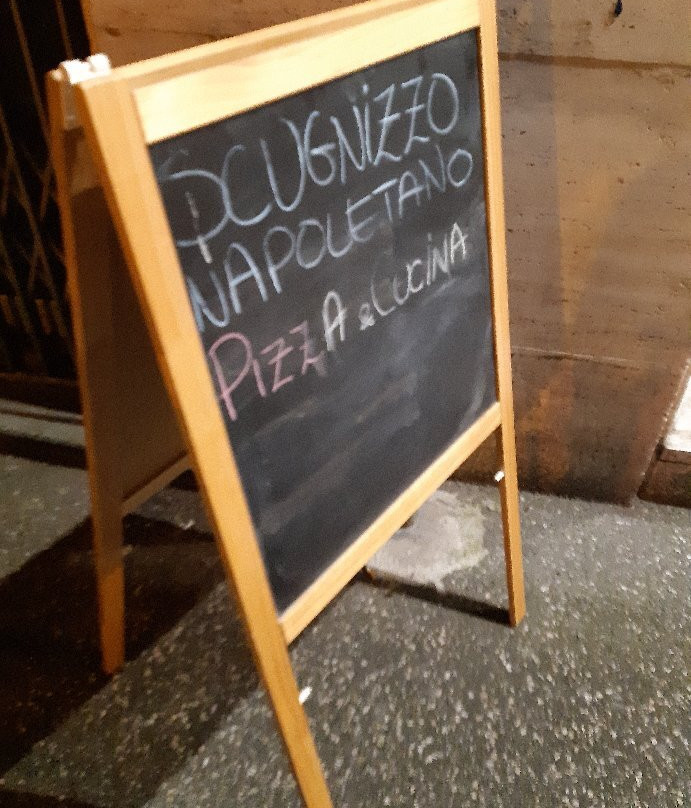 SCUGNIZZO
NAPOLETANO
PIZZA & CUCINA